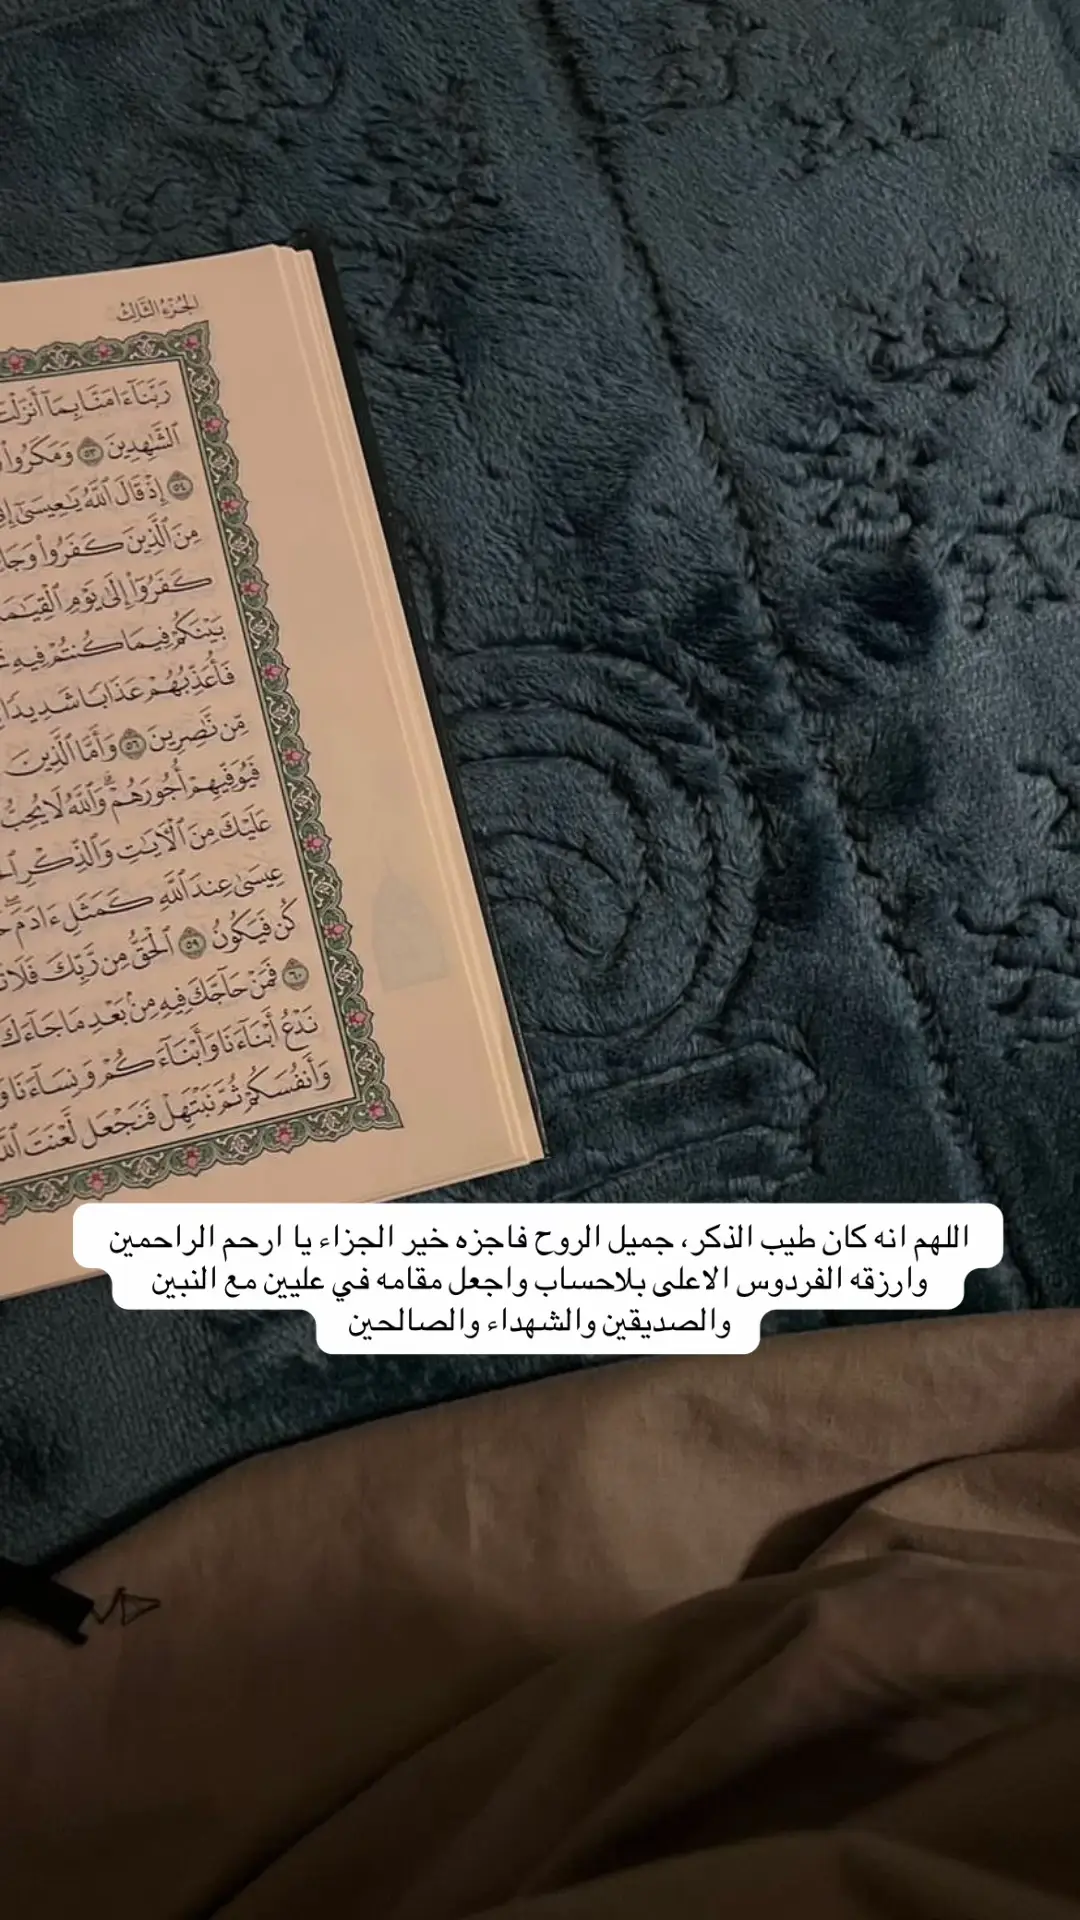 الجُزْءُ الثَّالِثُ
رَبَّنَآ ءَامَنَّا بِمَآ أَنزَلْتَ
ٱلشَّٰهِدِينَ ٥٣ وَمَكَرُوا۟
٥٤ إِذْ قَالَ ٱللَّهُ يَٰعِيسَىٰٓ
مِنَ ٱلَّذِينَ كَفَرُوا۟
كَفَرُوٓا۟ إِلَىٰ يَوْمِ ٱلْقِيَٰمَةِ
بَيْنَكُمْ فِيمَا كُنتُمْ فِيهِ
فَأُعَذِّبُهُمْ عَذَابًا شَدِيدًا
مِّن نَّٰصِرِينَ ٥٦ وَأَمَّا ٱلَّذِينَ
فَيُوَفِّيهِمْ أُجُورَهُمْ ۗ وَٱللَّهُ لَا يُحِبُّ
عَلَيْكَ مِنَ ٱلْءَايَٰتِ وَٱلذِّكْرِ
عِيسَىٰ عِندَ ٱللَّهِ كَمَثَلِ ءَادَمَ ۖ
كُن فَيَكُونُ ٥٩ ٱلْحَقُّ مِن رَّبِّكَ فَلَا
٦٠ فَمَنْ حَآجَّكَ فِيهِ مِنۢ بَعْدِ مَا جَآءَكَ
نَدْعُ أَبْنَآءَنَا وَأَبْنَآءَكُمْ وَنِسَآءَنَا
وَأَنفُسَكُمْ ثُمَّ نَبْتَهِلْ فَنَجْعَل لَّعْنَتَ
اللهم انه كان طيب الذكر، جميل الروح فاجزه خير الجزاء يا ارحم الراحمين
وارزقه الفردوس الاعلى بلاحساب واجعل مقامه في عليين مع النبين
والصديقين والشهداء والصالحين